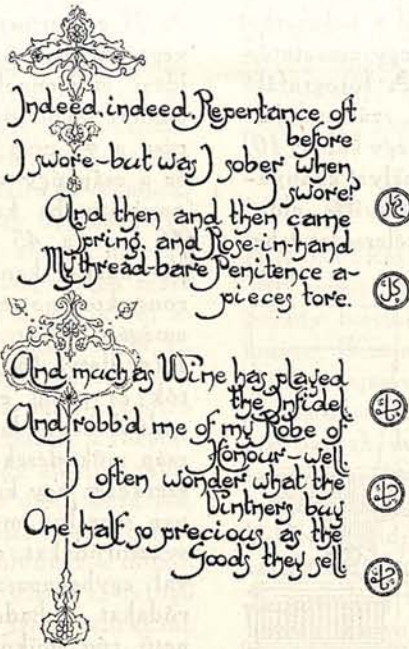 Indeed, indeed, Repentance oft
before
I swore—but was I sober when
I swore?
And then and then came
Spring, and Rose-in-hand
My thread-bare Penitence a-
pieces tore.
And much as Wine has played
the Infidel
And robb'd me of my Robe of
Honour—well
I often wonder what the
Vintners buy
One half so precious as the
Goods they sell.